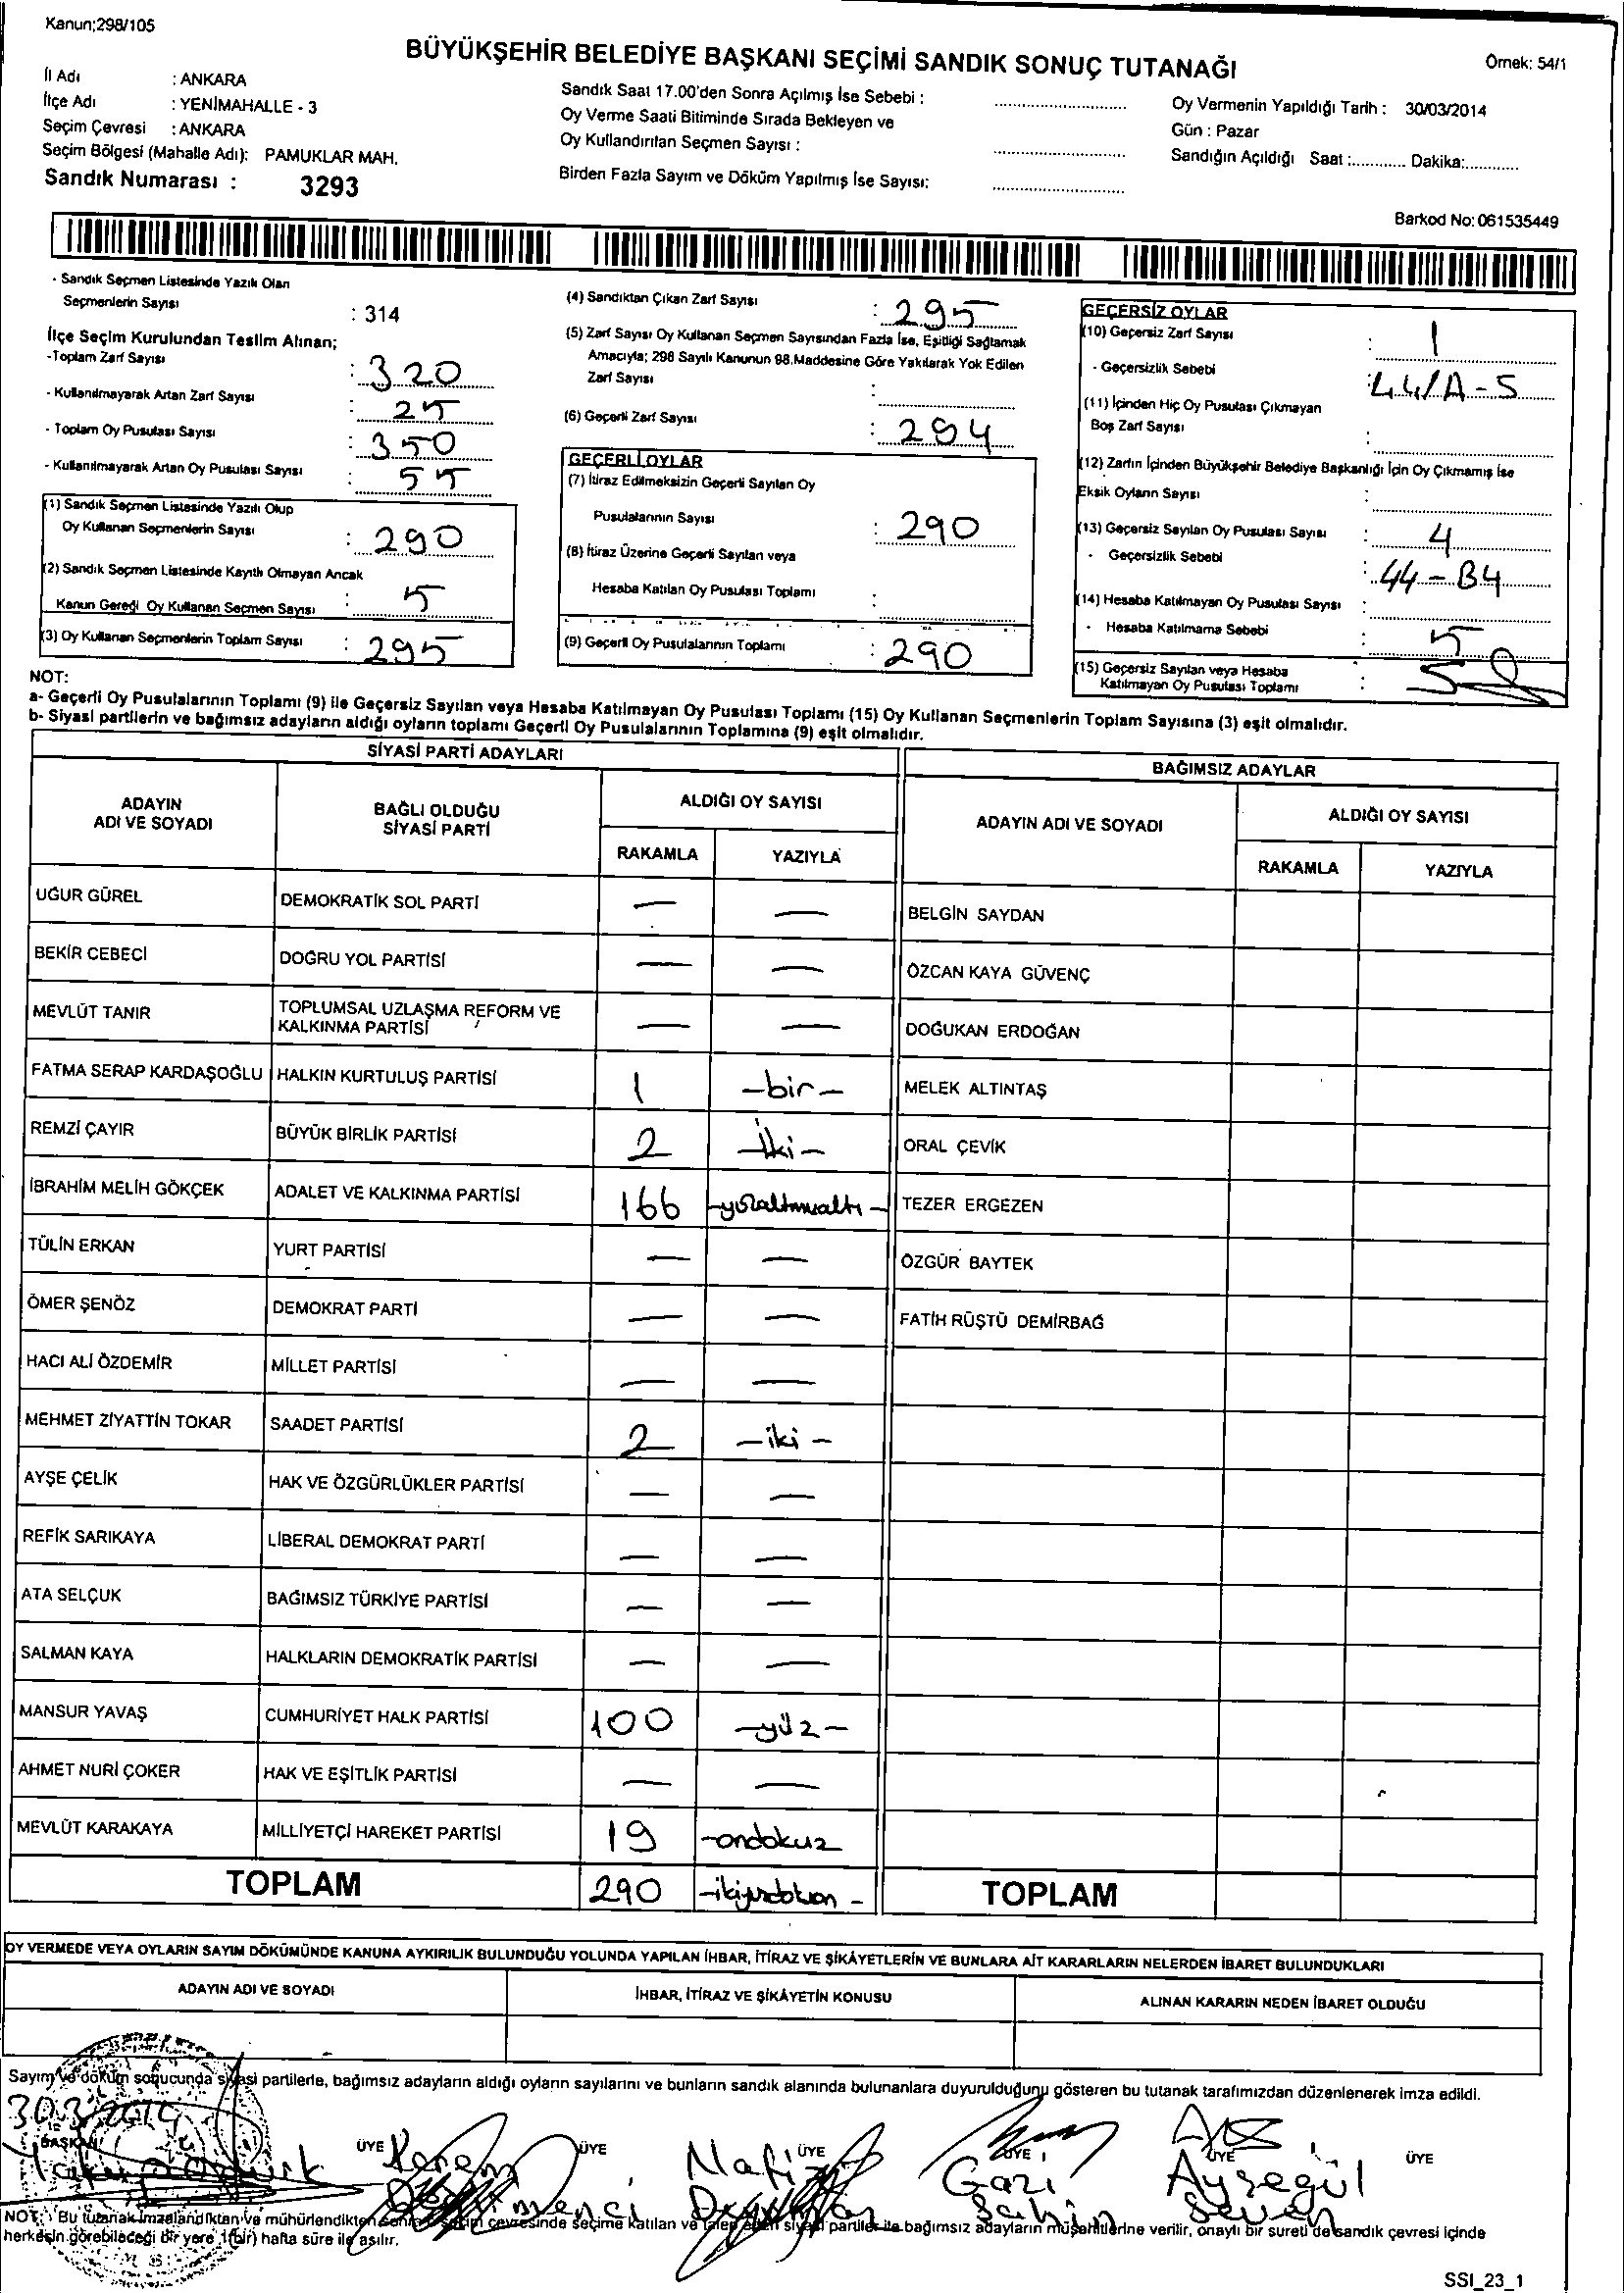 Kanun;298/105
BÜYÜKŞEHİR BELEDİYE BAŞKANI SEÇİMİ SANDIK SONUÇ TUTANAĞI
Örnek: 54/1
İl Adı : ANKARA
İlçe Adı : YENİMAHALLE - 3
Seçim Çevresi : ANKARA
Seçim Bölgesi (Mahalle Adı): PAMUKLAR MAH.
Sandık Numarası : 3293
Sandık Saat 17.00'den Sonra Açılmış İse Sebebi :
Oy Verme Saati Bitiminde Sırada Bekleyen ve
Oy Kullandırılan Seçmen Sayısı :
Birden Fazla Sayım ve Döküm Yapılmış İse Sayısı:
Oy Vermenin Yapıldığı Tarih : 30/03/2014
Gün : Pazar
Sandığın Açıldığı Saat :............ Dakika:............
Barkod No: 061535449
- Sandık Seçmen Listesinde Yazılı Olan
Seçmenlerin Sayısı : 314
İlçe Seçim Kurulundan Teslim Alınan;
-Toplam Zarf Sayısı : 320
- Kullanılmayarak Artan Zarf Sayısı : 25
- Toplam Oy Pusulası Sayısı : 350
- Kullanılmayarak Artan Oy Pusulası Sayısı : 55
(1) Sandık Seçmen Listesinde Yazılı Olup
Oy Kullanan Seçmenlerin Sayısı : 290
(2) Sandık Seçmen Listesinde Kayıtlı Olmayan Ancak
Kanun Gereği Oy Kullanan Seçmen Sayısı : 5
(3) Oy Kullanan Seçmenlerin Toplam Sayısı : 295
(4) Sandıktan Çıkan Zarf Sayısı : 295
(5) Zarf Sayısı Oy Kullanan Seçmen Sayısından Fazla İse, Eşitliği Sağlamak
Amacıyla; 298 Sayılı Kanunun 98.Maddesine Göre Yakılarak Yok Edilen
Zarf Sayısı :
(6) Geçerli Zarf Sayısı : 294
GEÇERLİ OYLAR
(7) İtiraz Edilmeksizin Geçerli Sayılan Oy
Pusulalarının Sayısı : 290
(8) İtiraz Üzerine Geçerli Sayılan veya
Hesaba Katılan Oy Pusulası Toplamı :
(9) Geçerli Oy Pusulalarının Toplamı : 290
GEÇERSİZ OYLAR
(10) Geçersiz Zarf Sayısı : 1
- Geçersizlik Sebebi : 44/A-5
(11) İçinden Hiç Oy Pusulası Çıkmayan
Boş Zarf Sayısı :
(12) Zarfın İçinden Büyükşehir Belediye Başkanlığı İçin Oy Çıkmamış İse
Eksik Oyların Sayısı :
(13) Geçersiz Sayılan Oy Pusulası Sayısı : 4
- Geçersizlik Sebebi : 44-B4
(14) Hesaba Katılmayan Oy Pusulası Sayısı :
- Hesaba Katılmama Sebebi : 5
(15) Geçersiz Sayılan veya Hesaba
Katılmayan Oy Pusulası Toplamı :
NOT:
a- Geçerli Oy Pusulalarının Toplamı (9) ile Geçersiz Sayılan veya Hesaba Katılmayan Oy Pusulası Toplamı (15) Oy Kullanan Seçmenlerin Toplam Sayısına (3) eşit olmalıdır.
b- Siyasi partilerin ve bağımsız adayların aldığı oyların toplamı Geçerli Oy Pusulalarının Toplamına (9) eşit olmalıdır.
SİYASİ PARTİ ADAYLARI
BAĞIMSIZ ADAYLAR
ADAYIN ADI VE SOYADI
BAĞLI OLDUĞU SİYASİ PARTİ
ALDIĞI OY SAYISI
RAKAMLA YAZIYLA
ADAYIN ADI VE SOYADI
ALDIĞI OY SAYISI
RAKAMLA YAZIYLA
UĞUR GÜREL DEMOKRATİK SOL PARTİ — — BELGİN SAYDAN
BEKİR CEBECİ DOĞRU YOL PARTİSİ — — ÖZCAN KAYA GÜVENÇ
MEVLÜT TANIR TOPLUMSAL UZLAŞMA REFORM VE KALKINMA PARTİSİ — — DOĞUKAN ERDOĞAN
FATMA SERAP KARDAŞOĞLU HALKIN KURTULUŞ PARTİSİ 1 -bir- MELEK ALTINTAŞ
REMZİ ÇAYIR BÜYÜK BİRLİK PARTİSİ 2 -İki- ORAL ÇEVİK
İBRAHİM MELİH GÖKÇEK ADALET VE KALKINMA PARTİSİ 166 -yüzaltmışaltı- TEZER ERGEZEN
TÜLİN ERKAN YURT PARTİSİ — — ÖZGÜR BAYTEK
ÖMER ŞENÖZ DEMOKRAT PARTİ — — FATİH RÜŞTÜ DEMİRBAĞ
HACI ALİ ÖZDEMİR MİLLET PARTİSİ — —
MEHMET ZİYATTİN TOKAR SAADET PARTİSİ 2 -iki-
AYŞE ÇELİK HAK VE ÖZGÜRLÜKLER PARTİSİ — —
REFİK SARIKAYA LİBERAL DEMOKRAT PARTİ — —
ATA SELÇUK BAĞIMSIZ TÜRKİYE PARTİSİ — —
SALMAN KAYA HALKLARIN DEMOKRATİK PARTİSİ — —
MANSUR YAVAŞ CUMHURİYET HALK PARTİSİ 100 -yüz-
AHMET NURİ ÇOKER HAK VE EŞİTLİK PARTİSİ — —
MEVLÜT KARAKAYA MİLLİYETÇİ HAREKET PARTİSİ 19 -ondokuz
TOPLAM 290 -ikiyüzdoksan- TOPLAM
OY VERMEDE VEYA OYLARIN SAYIM DÖKÜMÜNDE KANUNA AYKIRILIK BULUNDUĞU YOLUNDA YAPILAN İHBAR, İTİRAZ VE ŞİKÂYETLERİN VE BUNLARA AİT KARARLARIN NELERDEN İBARET BULUNDUKLARI
ADAYIN ADI VE SOYADI İHBAR, İTİRAZ VE ŞİKÂYETİN KONUSU ALINAN KARARIN NEDEN İBARET OLDUĞU
Sayım ve döküm sonucunda siyasi partilerle, bağımsız adayların aldığı oyların sayılarını ve bunların sandık alanında bulunanlara duyurulduğunu gösteren bu tutanak tarafımızdan düzenlenerek imza edildi.
30.3.2014
BAŞKAN ÜYE ÜYE ÜYE ÜYE ÜYE ÜYE
Kerem Nafiz Gazi Şahin Ayşegül Seven
NOT : Bu tutanak imzalandıktan ve mühürlendikten sonra seçim çevresinde seçime katılan ve talep eden siyasi partiler ile bağımsız adayların müşahitlerine verilir, onaylı bir sureti de sandık çevresi içinde
herkesin görebileceği bir yere 1(bir) hafta süre ile asılır.
SSI_23_1